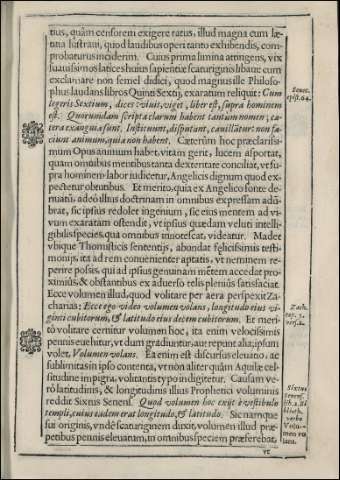 tius, quàm censorem exigere ratus, illud magna cum læ-
titia lustraui, quod laudibus operi tanto exhibendis, com-
probaturus inciderim. Cuius prima limina attingens, vix
suauissimos latices huius sapientiæ scaturiginis libaui: cum
exclamare non semel didici, quod magnus ille Philoso-
phus laudans libros Quinti Sextij, exaratum reliquit: Cum
legeris Sextium, dices: viuit, viget, liber est, supra hominem
est. Quorundam scripta clarum habent tantum nomen, ca-
tera exanguia sunt. Instituunt, disputant, cauillātur: non fa-
ciunt animum, quia non habent. Cæterùm hoc præclarissi-
mum Opus animum habet, vitam gerit, lucem asportat,
quam omnibus mentibus tanta dexteritate conciliat, vt su-
pra hominem labor iudicetur, Angelicis dignum quod ex-
pectetur obtutibus. Et merito, quia ex Angelico fonte de-
riuatū, adeò illius doctrinam in omnibus expressam adū-
brat, sic ipsius redolet ingenium, sic eius mentem ad vi-
uum exaratam ostendit, vt ipsius quædam veluti intelli-
gibilis species, qua omnibus innotescat, videatur. Madet
vbique Thomisticis sententijs, abundat felicissimis testi-
monijs, ita ad rem conuenienter aptatis, vt neminem re-
perire possis, qui ad ipsius genuinam mētem accedat pro-
ximiùs, & obstantibus ex aduerso telis pleniùs satisfaciat.
Ecce volumen illud, quod volitare per aera perspexit Za-
charias: Ecce ego video volumen volans, longitudo eius vi-
ginti cubitorum, & latitudo eius decem cubitorum. Et meri-
tò volitare cernitur volumen hoc, ita enim velocissimis
pennis euehitur, vt dum graditur, aut repunt alia; ipsum
volet. Volumen volans. Ea enim est discursus eleuatio, ac
sublimitas in ipso contenta, vt non aliter quàm Aquilæ cel-
situdine impigra, volitantis typo indigitetur. Causam ve-
rò latitudinis, & longitudinis illius Prophetici voluminis
reddit Sixtus Senens. Quod volumen hoc exijt è vestibulo
templi, cuius eadem erat longitudo, & latitudo. Sic namque
sui originis, vndè scaturiginem duxit, volumen illud præ-
petibus pennis eleuatum, in omnibus speciem præferebat,
vt
Senec.
epist. 64.
Zach.
cap. 5.
vers. 2.
Sixtus
Senens.
lib. 2. Bi
blioth.
verbo
Volu-
men vo
lans.